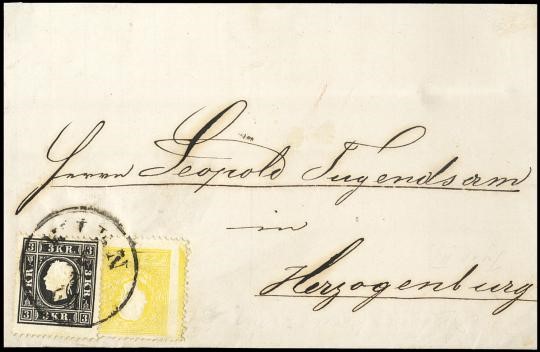 Herrn Leopold Tugendsam
in
Herzogenburg
WIEN
3 3 KR. 3
3 KR. 3 KR.
3 3 KR. 3